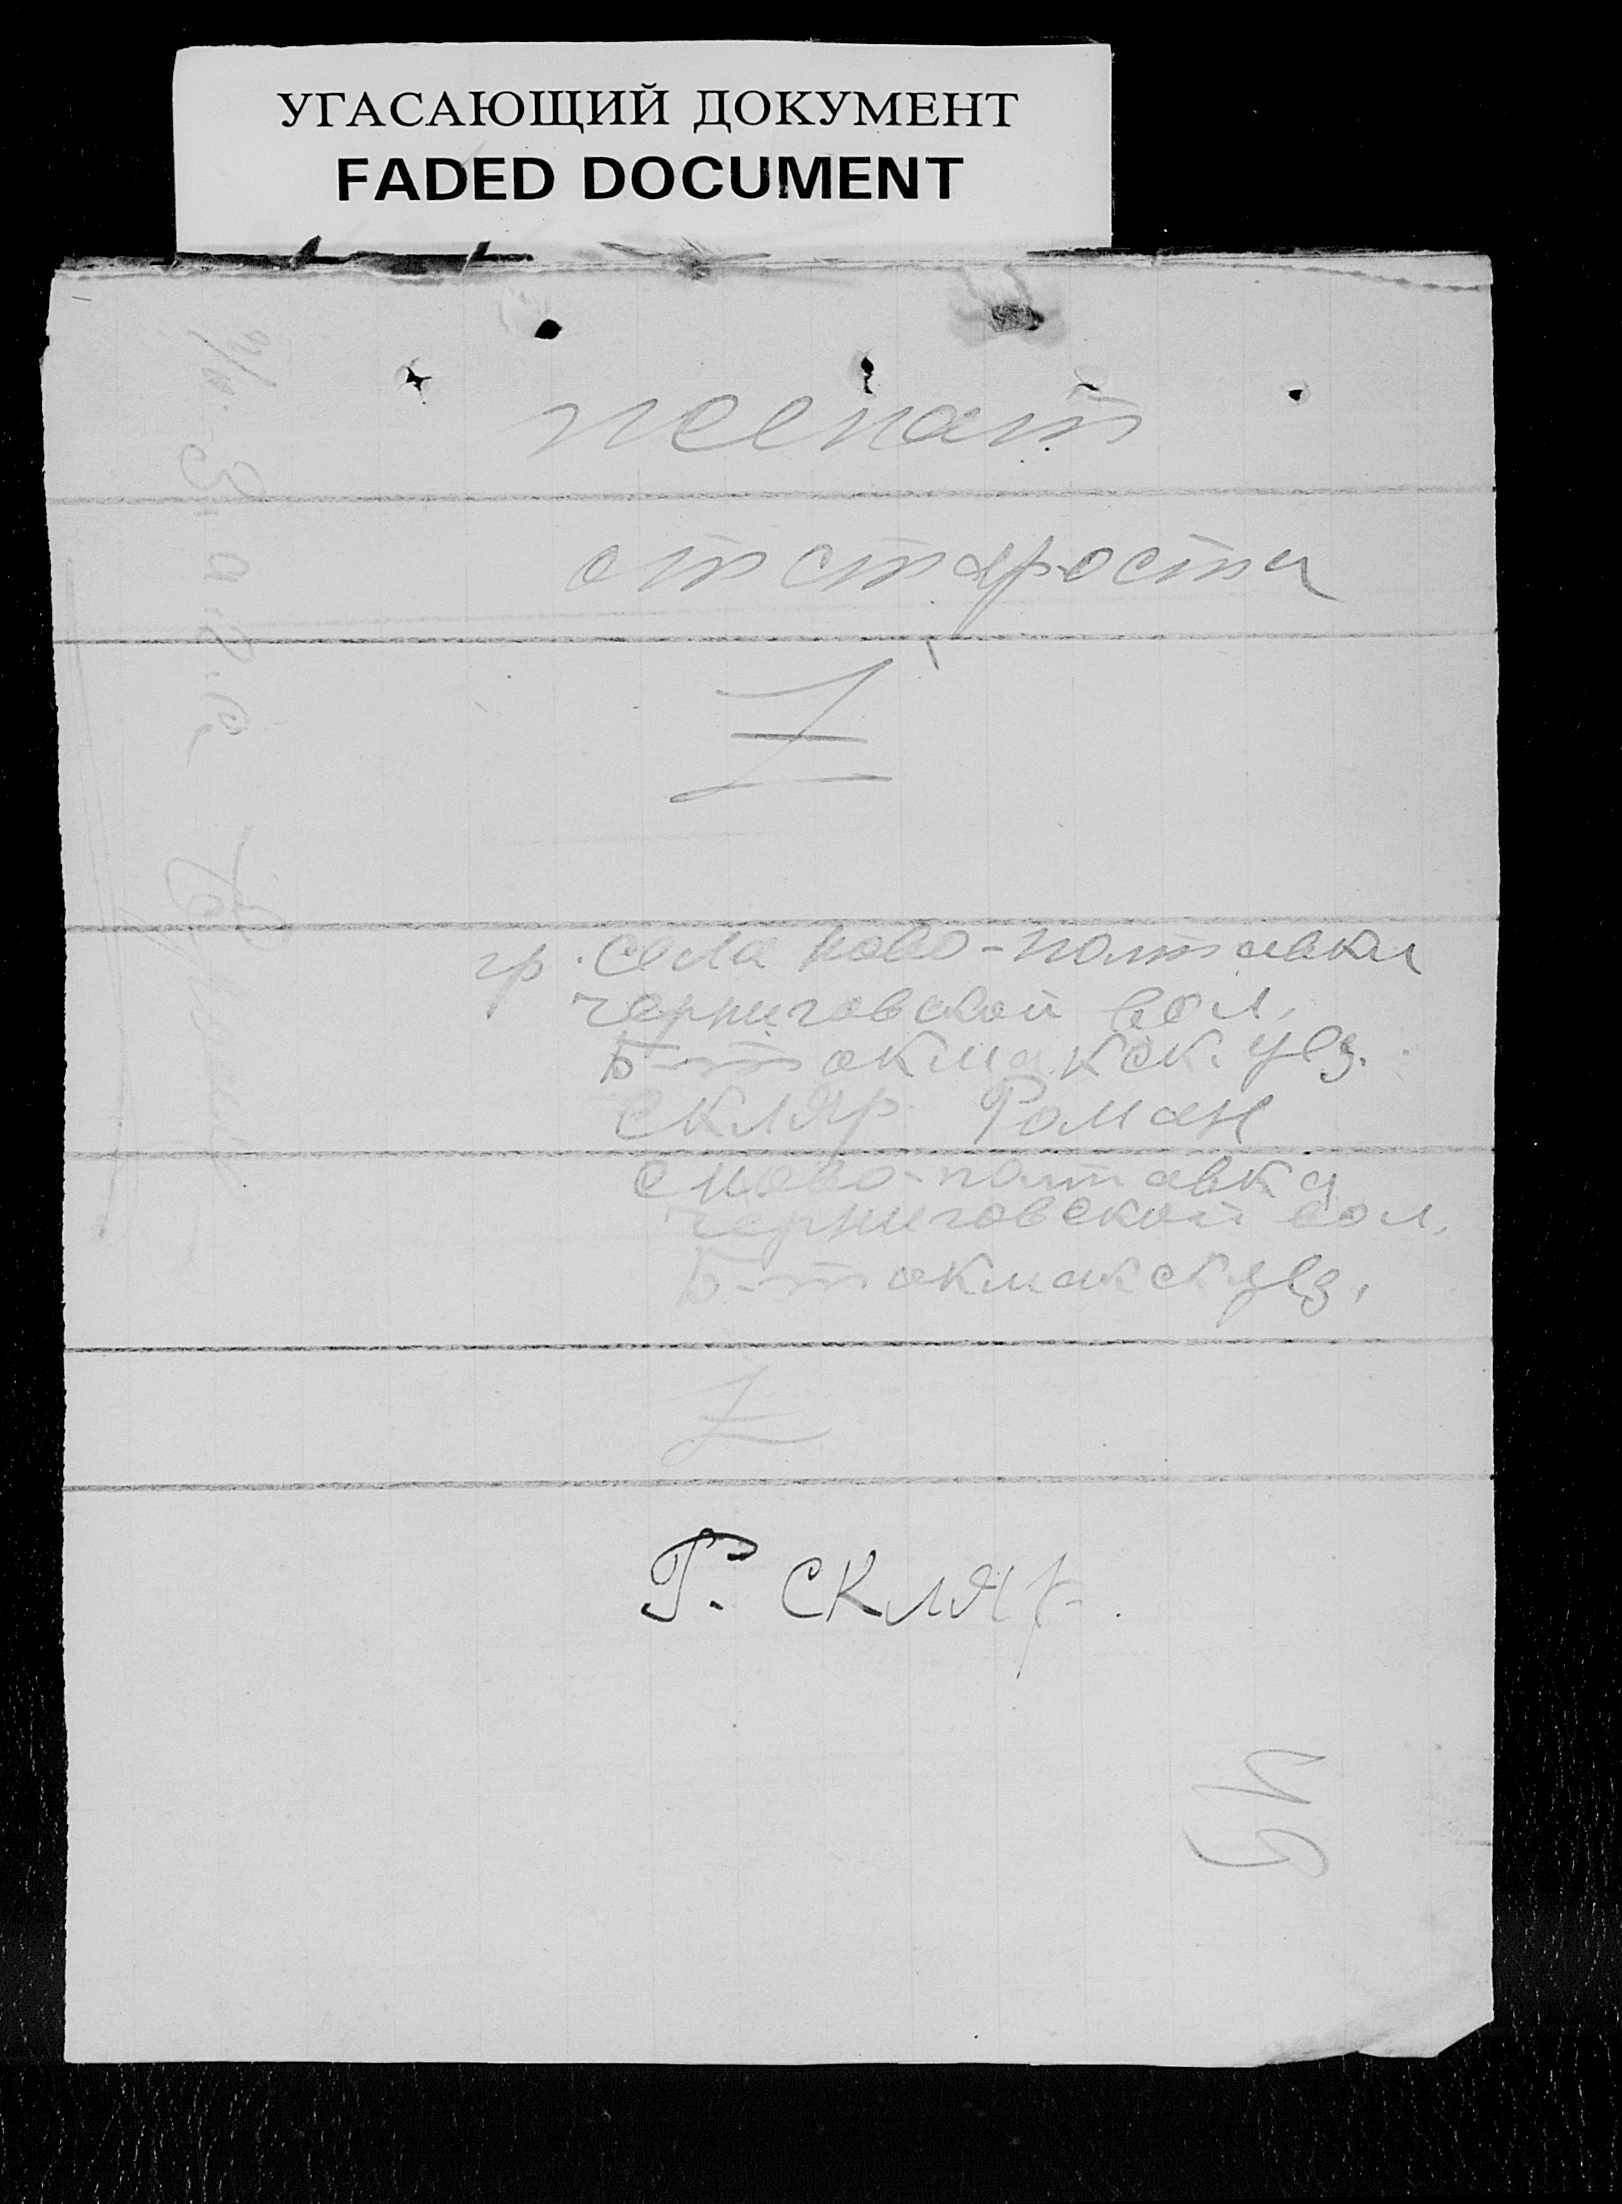 УГАСАЮЩИЙ ДОКУМЕНТ
FADED DOCUMENT
женат
от старости
гр. села ново-полтавки
черниговской вол.
Б-токмакск. уез.
Скляр Роман
с ново-полтавка
черниговской вол.
Б-токмакск уез.
Р. Скляр.